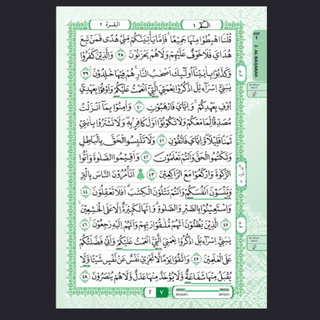 البقرة ٢
الم ١
قُلْنَا ٱهْبِطُوا۟ مِنْهَا جَمِيعًا ۖ فَإِمَّا يَأْتِيَنَّكُم مِّنِّى هُدًى فَمَن تَبِعَ
هُدَاىَ فَلَا خَوْفٌ عَلَيْهِمْ وَلَا هُمْ يَحْزَنُونَ ٣٨ وَٱلَّذِينَ كَفَرُوا۟
وَكَذَّبُوا۟ بِـَٔايَـٰتِنَآ أُو۟لَـٰٓئِكَ أَصْحَـٰبُ ٱلنَّارِ ۖ هُمْ فِيهَا خَـٰلِدُونَ ٣٩
يَـٰبَنِىٓ إِسْرَٰٓءِيلَ ٱذْكُرُوا۟ نِعْمَتِىَ ٱلَّتِىٓ أَنْعَمْتُ عَلَيْكُمْ وَأَوْفُوا۟ بِعَهْدِىٓ
أُوفِ بِعَهْدِكُمْ وَإِيَّـٰىَ فَٱرْهَبُونِ ٤٠ وَءَامِنُوا۟ بِمَآ أَنزَلْتُ
مُصَدِّقًا لِّمَا مَعَكُمْ وَلَا تَكُونُوٓا۟ أَوَّلَ كَافِرٍۭ بِهِۦ ۖ وَلَا تَشْتَرُوا۟ بِـَٔايَـٰتِى
ثَمَنًا قَلِيلًا وَإِيَّـٰىَ فَٱتَّقُونِ ٤١ وَلَا تَلْبِسُوا۟ ٱلْحَقَّ بِٱلْبَـٰطِلِ
وَتَكْتُمُوا۟ ٱلْحَقَّ وَأَنتُمْ تَعْلَمُونَ ٤٢ وَأَقِيمُوا۟ ٱلصَّلَوٰةَ وَءَاتُوا۟
ٱلزَّكَوٰةَ وَٱرْكَعُوا۟ مَعَ ٱلرَّٰكِعِينَ ٤٣ أَتَأْمُرُونَ ٱلنَّاسَ بِٱلْبِرِّ
وَتَنسَوْنَ أَنفُسَكُمْ وَأَنتُمْ تَتْلُونَ ٱلْكِتَـٰبَ ۚ أَفَلَا تَعْقِلُونَ ٤٤
وَٱسْتَعِينُوا۟ بِٱلصَّبْرِ وَٱلصَّلَوٰةِ ۚ وَإِنَّهَا لَكَبِيرَةٌ إِلَّا عَلَى ٱلْخَـٰشِعِينَ
٤٥ ٱلَّذِينَ يَظُنُّونَ أَنَّهُم مُّلَـٰقُوا۟ رَبِّهِمْ وَأَنَّهُمْ إِلَيْهِ رَٰجِعُونَ ٤٦
يَـٰبَنِىٓ إِسْرَٰٓءِيلَ ٱذْكُرُوا۟ نِعْمَتِىَ ٱلَّتِىٓ أَنْعَمْتُ عَلَيْكُمْ وَأَنِّى فَضَّلْتُكُمْ
عَلَى ٱلْعَـٰلَمِينَ ٤٧ وَٱتَّقُوا۟ يَوْمًا لَّا تَجْزِى نَفْسٌ عَن نَّفْسٍ شَيْـًٔا وَلَا
يُقْبَلُ مِنْهَا شَفَـٰعَةٌ وَلَا يُؤْخَذُ مِنْهَا عَدْلٌ وَلَا هُمْ يُنصَرُونَ ٤٨
7 ٧